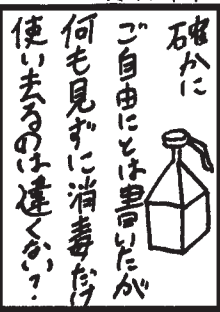 確かに
ご自由にとは書いたが
何も見ずに消毒だけ
使い去るのは違くない？